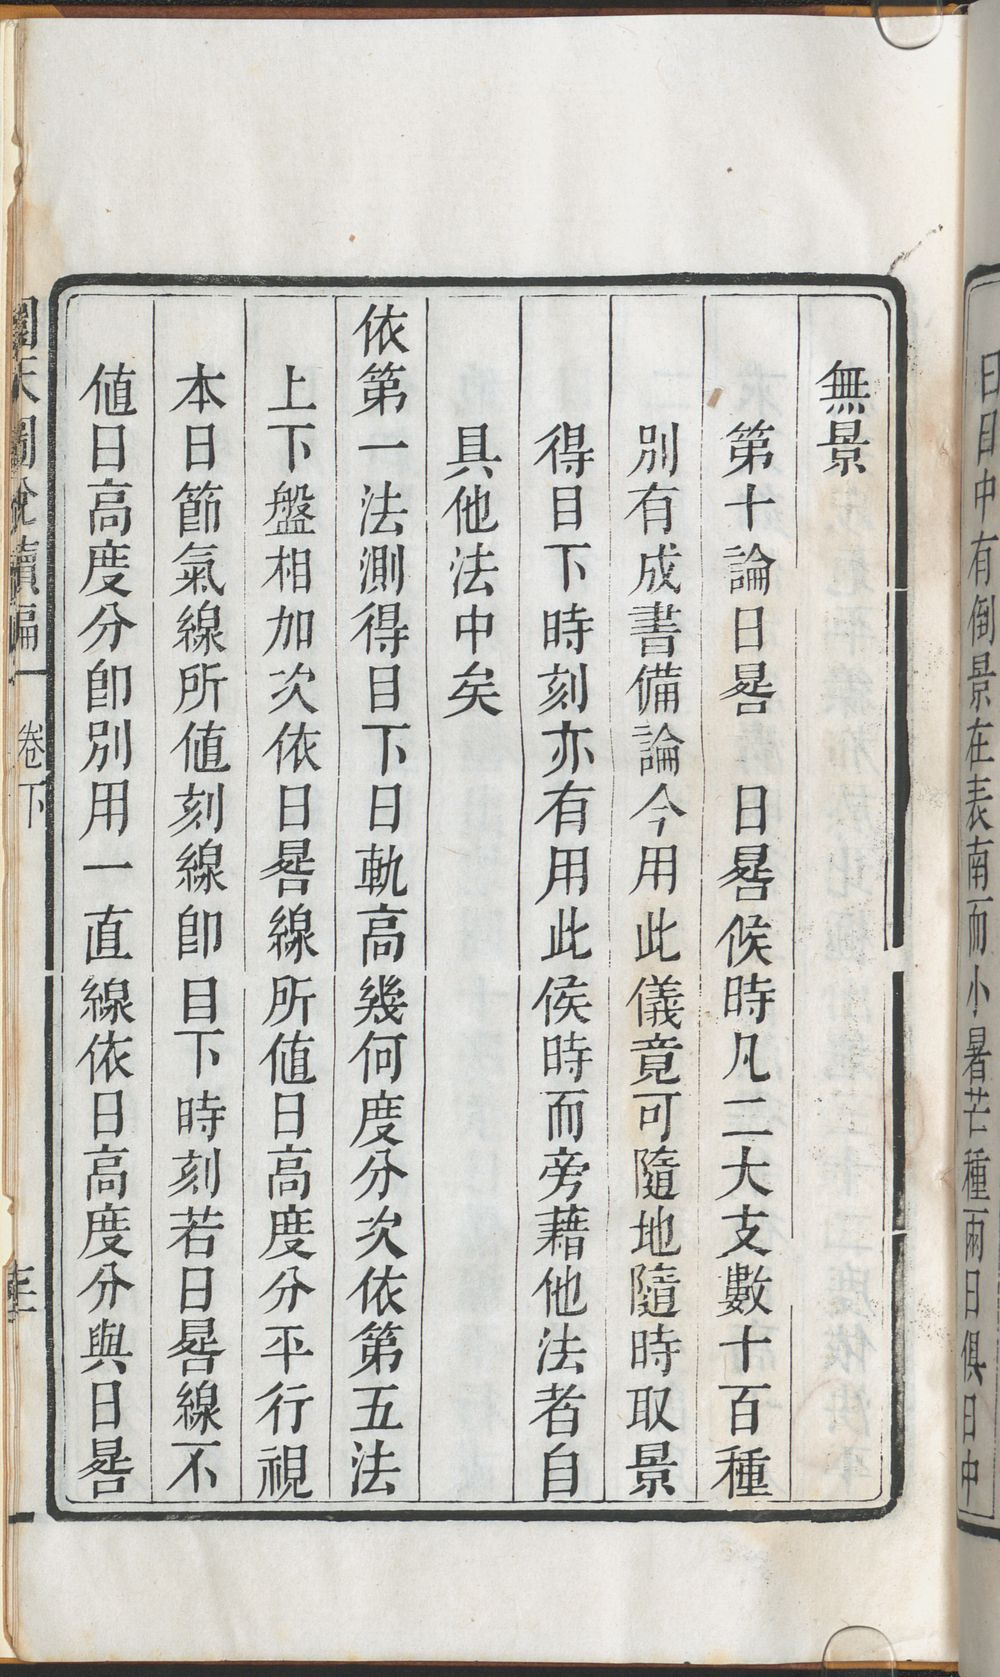 日日中有倒景在表南而小暑芒種兩日俱日中
無景
第十論日晷　日晷候時凡二大支數十百種
別有成書備論今用此儀竟可隨地隨時取景
得目下時刻亦有用此候時而旁藉他法者自
具他法中矣
依第一法測得目下日軌高幾何度分次依第五法
上下盤相加次依日晷線所值日高度分平行視
本日節氣線所值刻線卽目下時刻若日晷線不
值日高度分卽別用一直線依日高度分與日晷
卷下